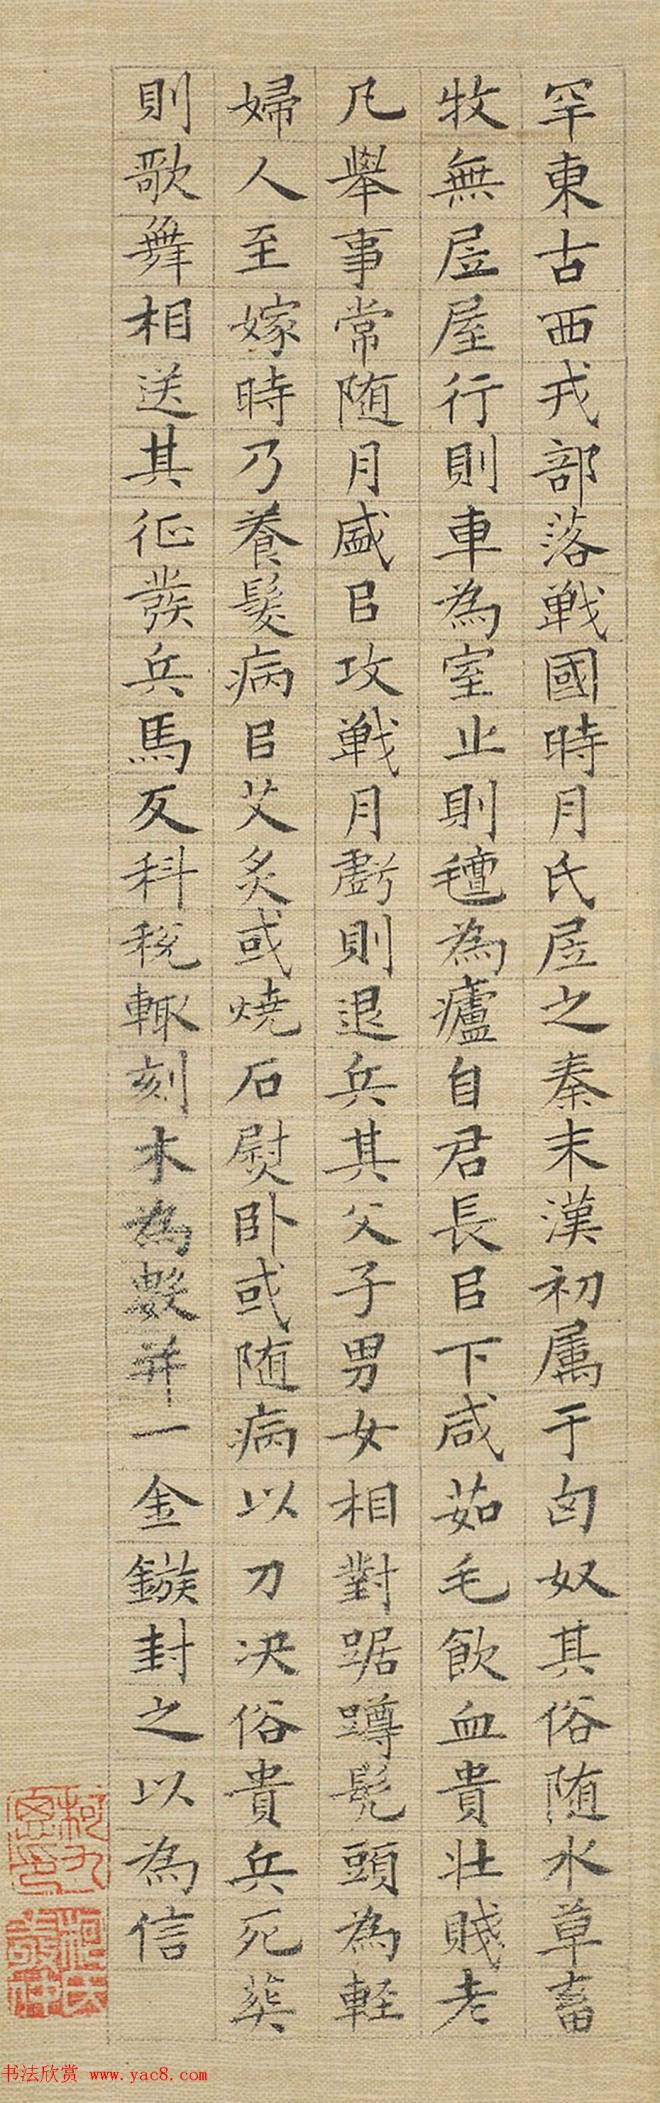 罕東古西戎部落戰國時月氏居之秦末漢初属于匈奴其俗随水草畜
牧無居屋行則車為室止則氊為廬自君長㠯下咸茹毛飲血貴壮賤老
凡舉事常随月盛㠯攻戰月虧則退兵其父子男女相對踞蹲髠頭為軽
婦人至嫁時乃養髮病㠯艾炙或燒石熨卧或随病以刀决俗貴兵死葬
則歌舞相送其征發兵馬及科稅輙刻木為數并一金鏃封之以為信
书法欣赏 www.yac8.com